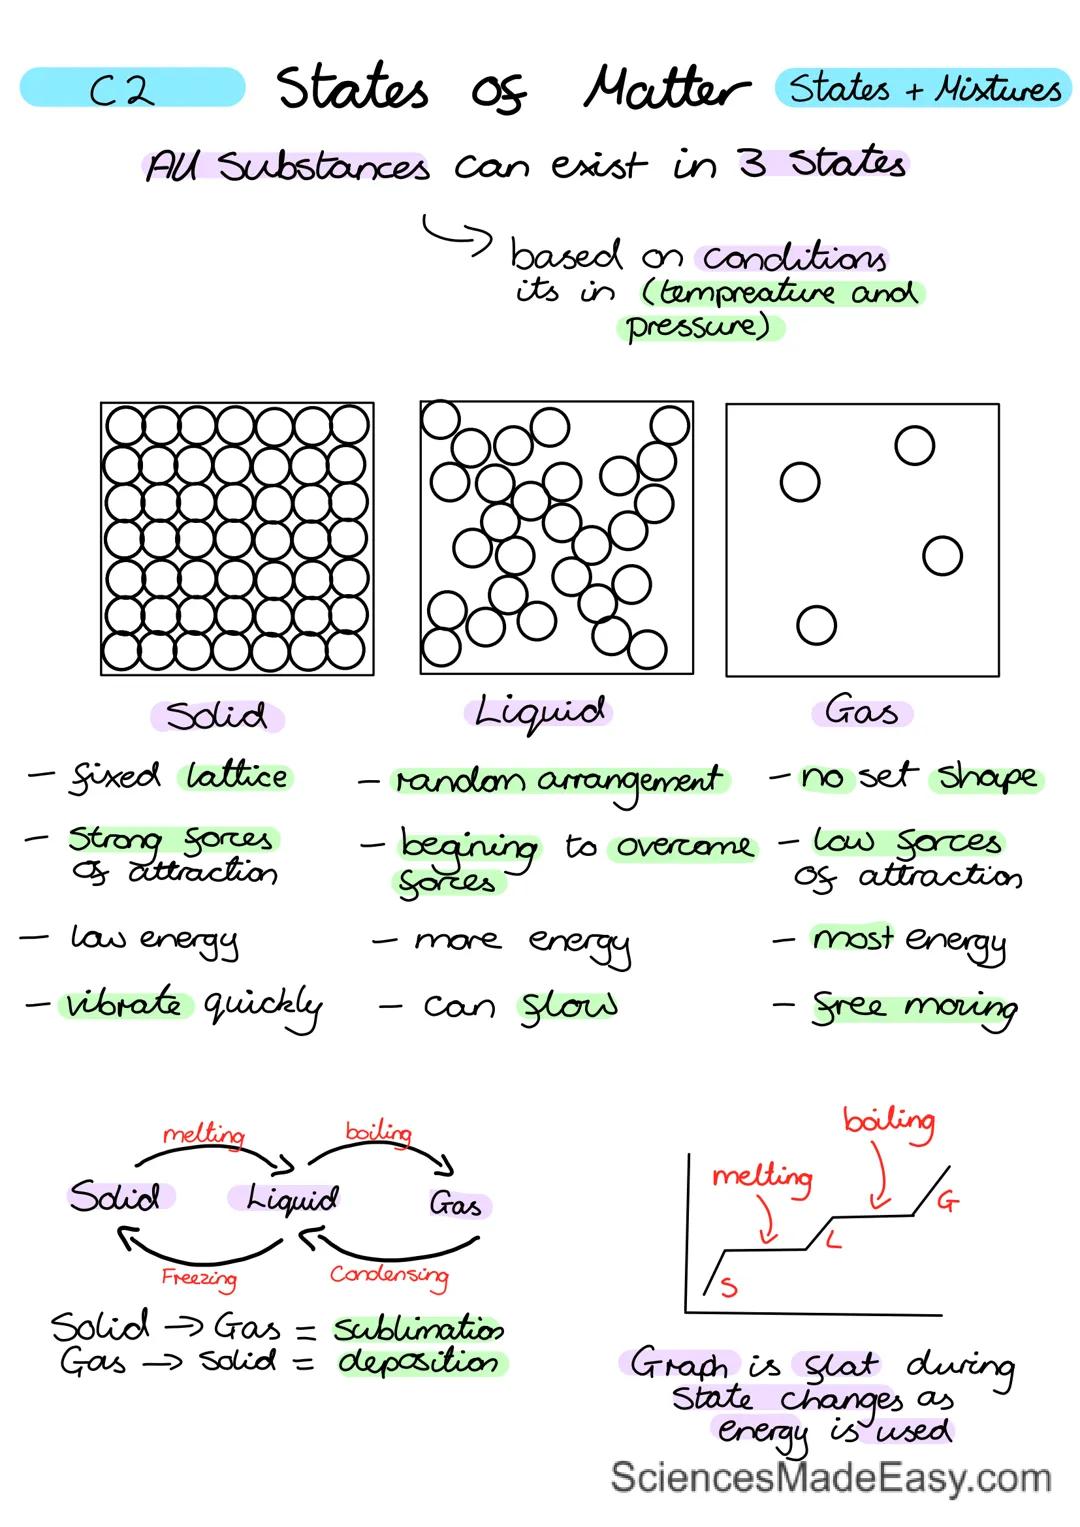 C2 States of Matter States + Mixtures
All Substances can exist in 3 States
based on conditions
its in (tempreature and
pressure)
Solid
- fixed lattice
- Strong forces
of attraction
- low energy
- vibrate quickly
Liquid
- random arrangement
- begining to overcome
forces
- more energy
- can flow
Gas
- no set shape
- low forces
of attraction
- most energy
- free moving
melting boiling
Solid Liquid Gas
Freezing Condensing
Solid → Gas = sublimation
Gas → Solid = deposition
boiling
melting
G
L
S
Graph is flat during
State changes as
energy is used
SciencesMadeEasy.com